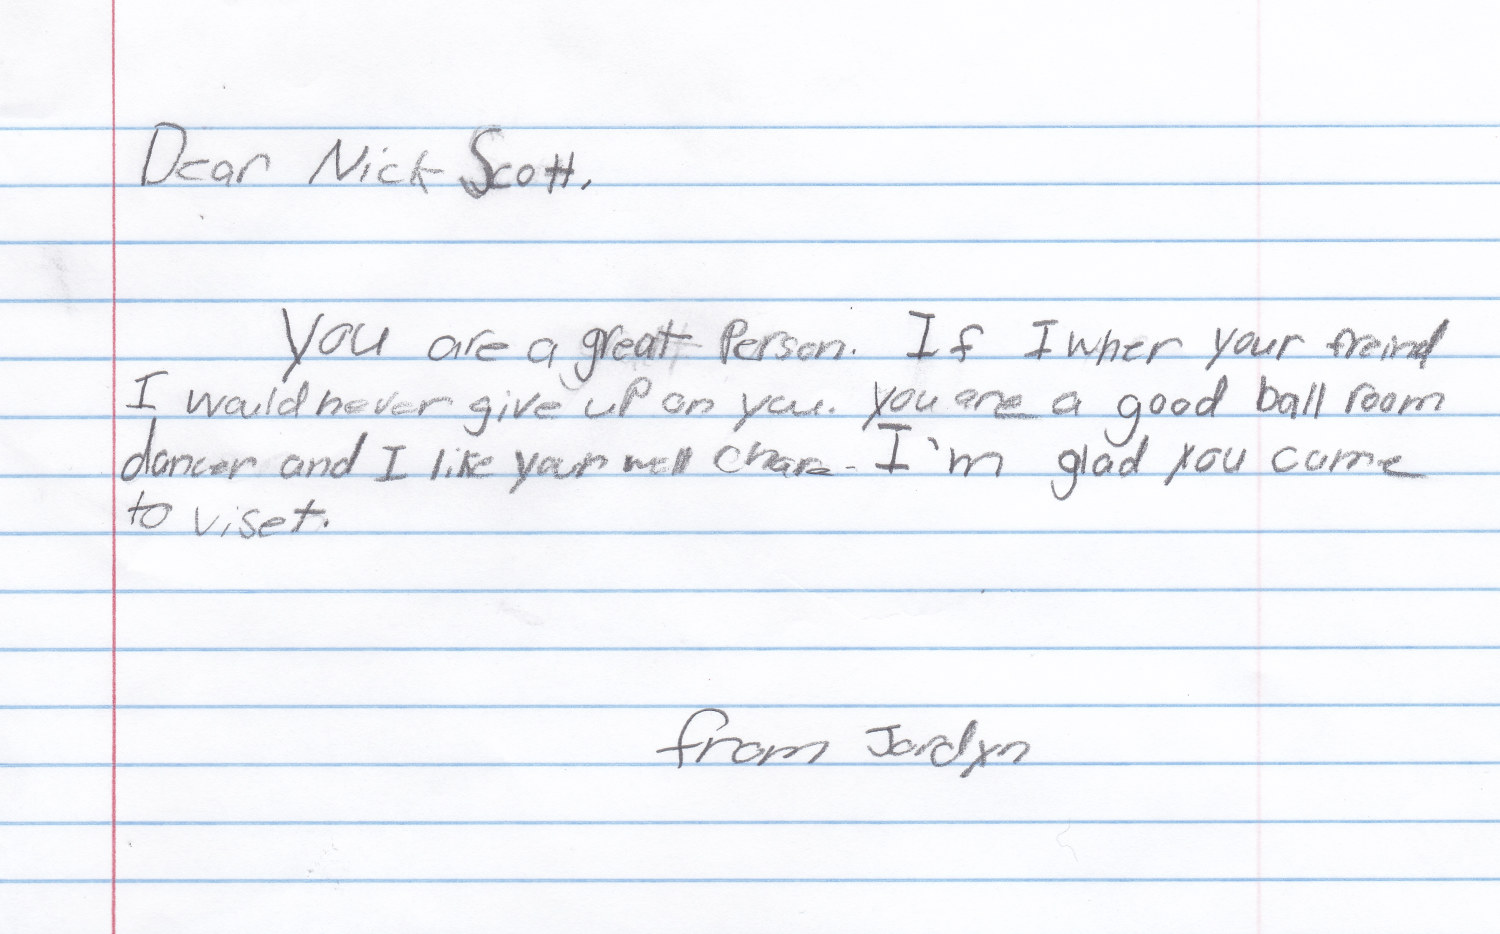 Dear Nick Scott,
You are a great Person. If I wher your freind
I would never give up on you. you are a good ball room
dancer and I like your chare. I'm glad you came
to viset.
from Jordyn